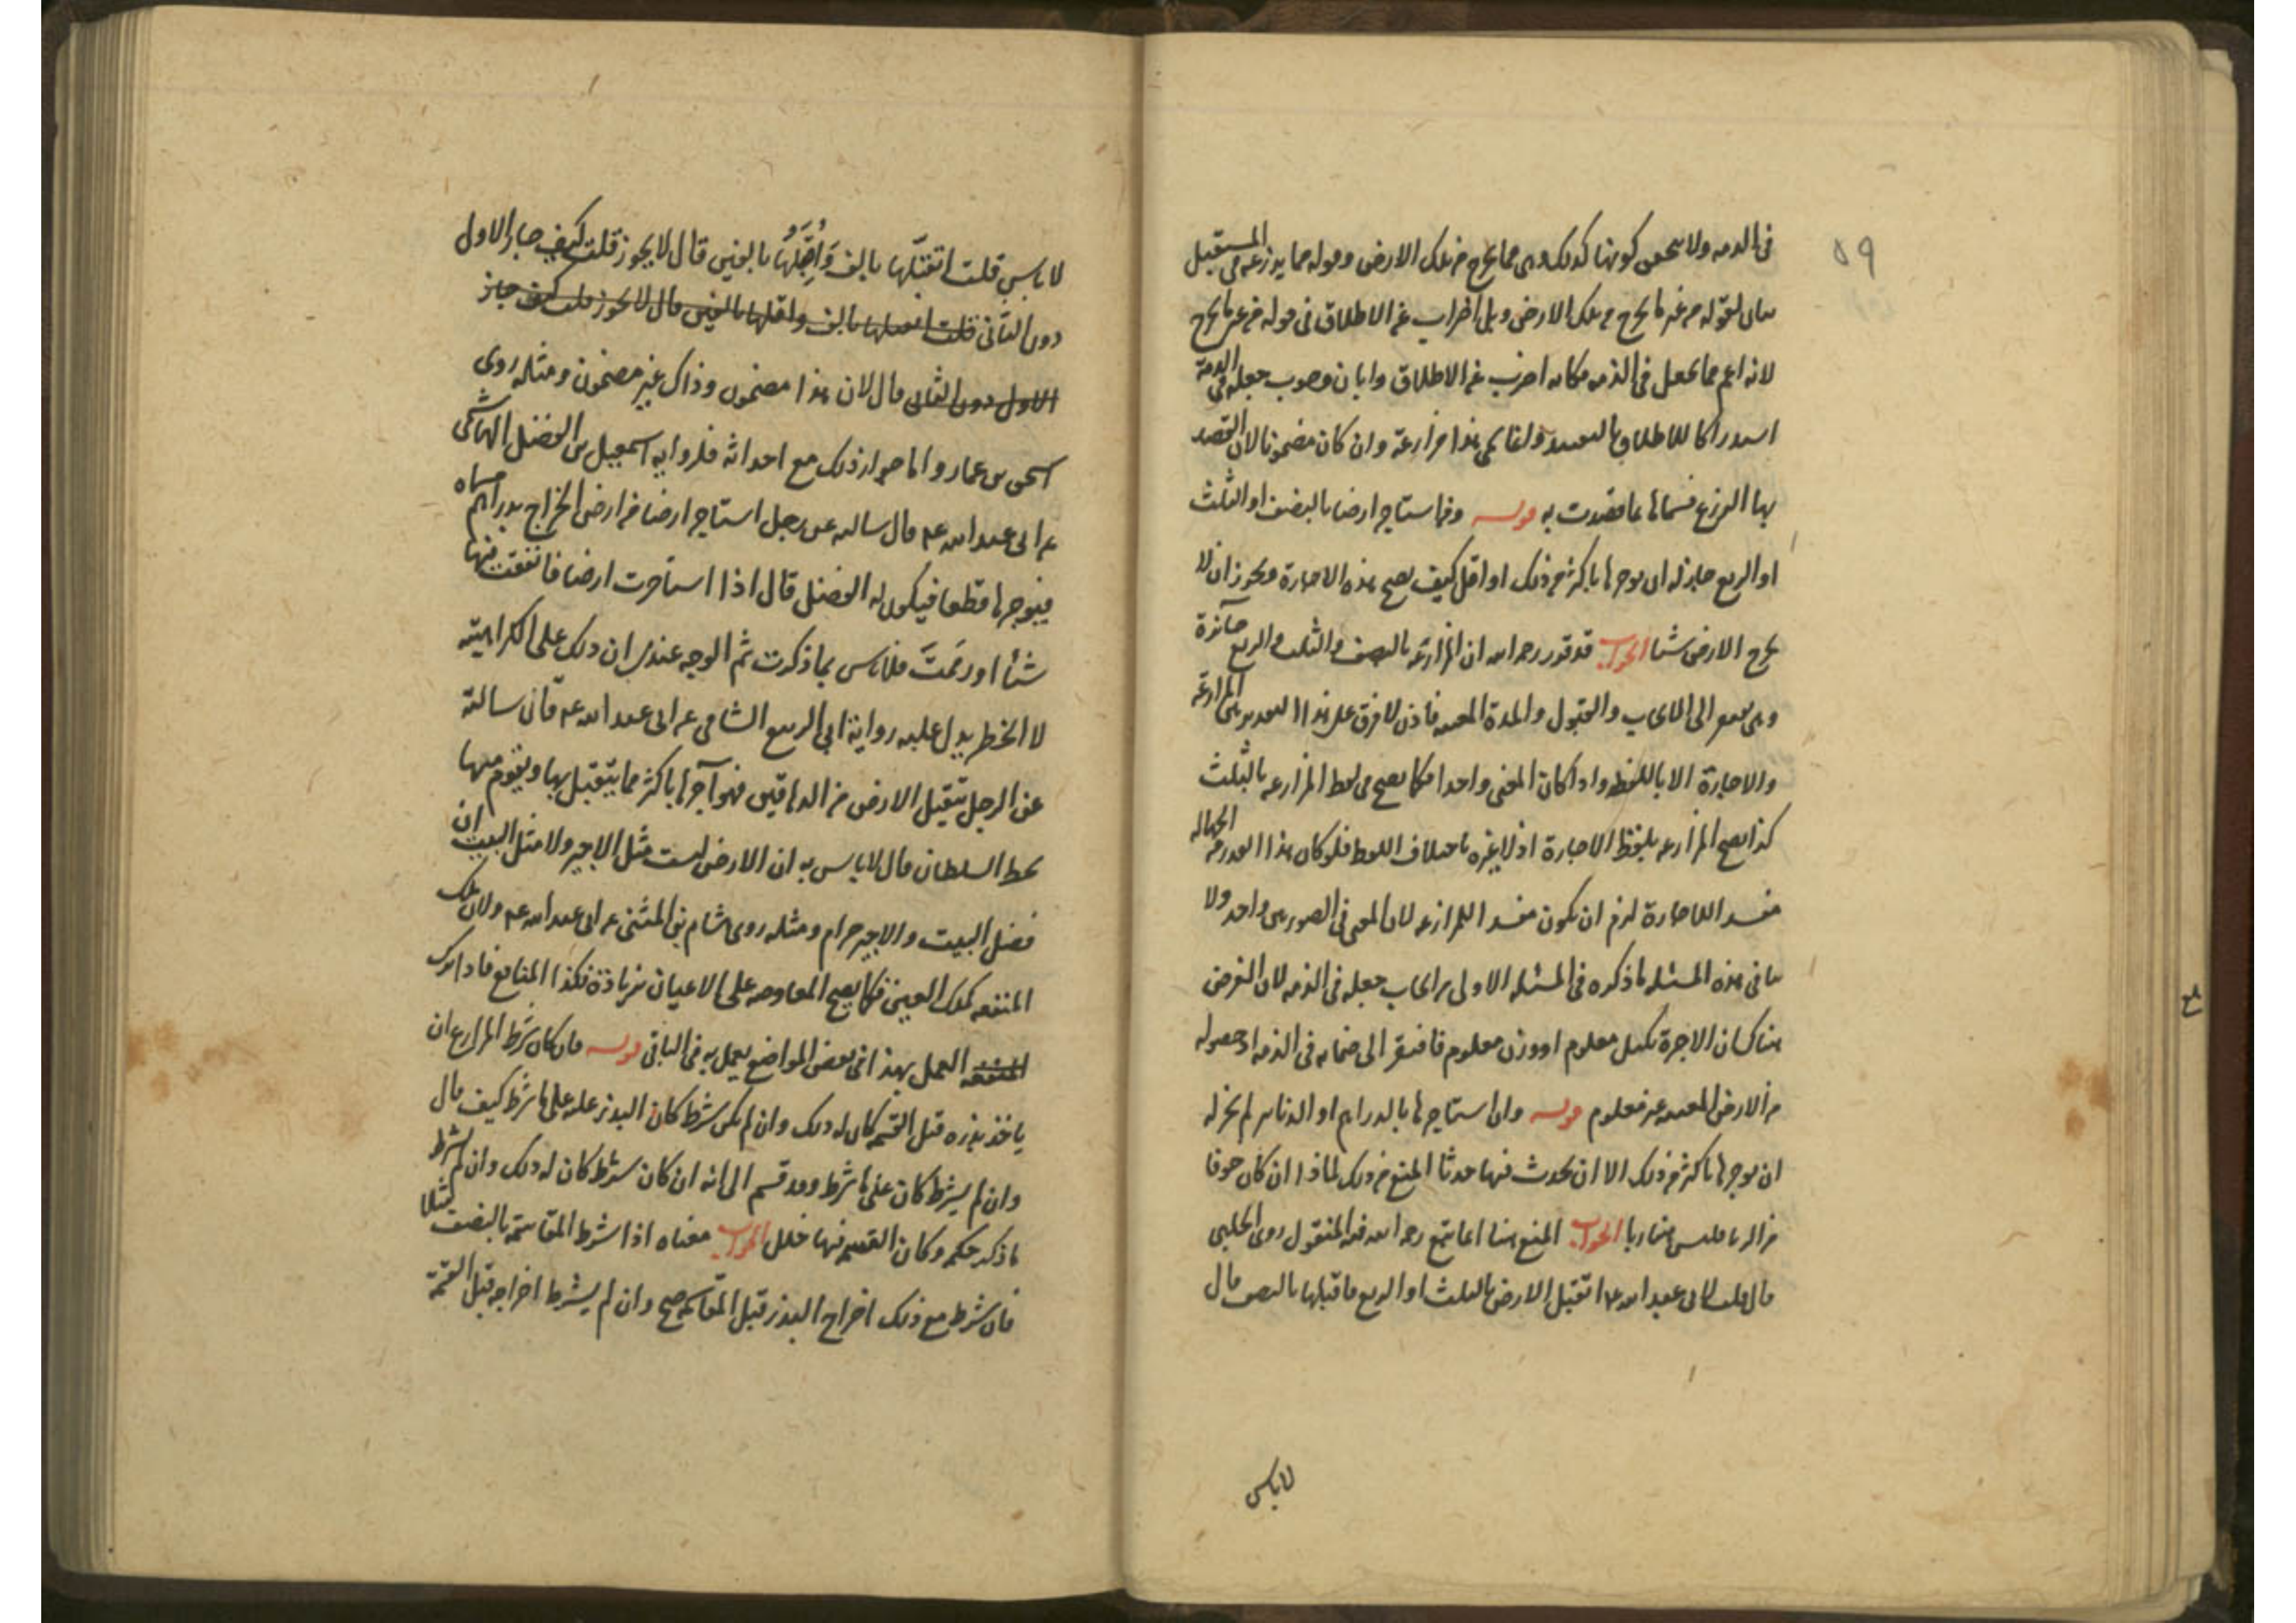 ٥٩
في الذمه ولا كونها كذلك وهي مما يخرج من تلك الارض وقوله مما يزرعه في المستقبل
بيان لقوله من غير ما يخرج من تلك الارض وبل اضراب عن الاطلاق في قوله من غير ما يخرج
لانه اعم مما يجعل في الذمه فكانه اضرب عن الاطلاق وابان وجوب جعله في الذمة
استدراكا للاطلاق بالتقييد هذا مزارعة وان كان مضمونا لان القصد
بها الزرع فسماها بما قصدت به قوله ومن استاجر ارضا بالنصف او الثلث
او الربع جاز له ان يوجرها باكثر من ذلك او اقل كيف يصح هذه الاجارة ويجوز ان لا
يخرج الارض شيئا الجواب قد قرر رحمه الله ان المزارعة بالنصف والثلث والربع جائزة
وهي الى الايجاب والقبول والمدة المعينه فاذن لا فرق على هذا التقدير بين المزارعة
والاجارة الا باللفظ واذا كان المعنى واحدا فكما يصح في لفظ المزارعه بالثلث
كذا يصح المزارعه بلفظ الاجارة اذ لا عبرة باختلاف اللفظ فلو كان هذا القدر من الجهاله
مفسدا للاجارة لزم ان يكون مفسدا للمزارعه لان المعنى في الصورتين واحد ولا
ينافي هذه المسئله ما ذكره في المسئله الاولى من ايجاب جعله في الذمه لان الغرض
هناك ان الاجرة بكيل معلوم او وزن معلوم فافتقر الى ضمانه في الذمه اذ حصوله
من الارض المعينه غير معلوم قوله وان استاجرها بالدراهم او الدنانير لم يجز له
ان يوجرها باكثر من ذلك الا ان يحدث فيها حدثا المنع من ذلك لماذا ان كان خوفا
من الربا فليس هنا ربا الجواب المنع هنا انما يتبع رحمه الله فيه المنقول روى الحلبي
قال قلت لابي عبد الله ع اتقبل الارض بالثلث او الربع فاقبلها بالنصف قال
لا باس
لا باس قلت اتقبلها بالف واقبلها بالفين قال لا يجوز قلت كيف جاز الاول
دون الثاني قلت اتقبلها بالف واقبلها بالفين قال لا يجوز قلت كيف جاز
الاول دون الثاني قال لان هذا مضمون وذاك غير مضمون ومثله روى
اسحق بن عمار واما جواز ذلك مع احداثه فلرواية اسمعيل بن الفضل الهاشمي
عن ابي عبد الله ع قال سالته عن رجل استاجر ارضا من ارض الخراج بدراهم مسماه
فيوجرها قطعا فيكون له الفضل قال اذا استاجرت ارضا فانفقت فيها
شيئا او رممت فلا باس بما ذكرت ثم الوجه عندي ان ذلك على الكراهية
لا الحظر يدل عليه رواية ابي الربيع الشامي عن ابي عبد الله ع قال سالته
عن الرجل يتقبل الارض من الدهاقين فيواجرها باكثر مما يتقبل بها ويقوم فيها
بحظ السلطان قال لا باس به ان الارض ليست مثل الاجير ولا مثل البيت ان
فضل البيت والاجير حرام ومثله روى هشام بن المثنى عن ابي عبد الله ع ولان ملك
المنفعه كملك العين فكما يصح المعاوضه على الاعيان بزيادة فكذا المنافع فاذا ترك
المنفعه العمل بهذا في بعض المواضع يعمل به في الباقي قوله فان كان شرط المزارع ان
ياخذ بذره قبل القسمه كان له ذلك وان لم يكن شرط كان البذر عليه على ما شرط كيف قال
وان لم يشرط كان على ما شرط وقد قسم الى انه ان كان شرط كان له ذلك وان لم يشرط
ما ذكر حكمه وكان القسيم فيها خلل الجواب معناه اذا شرط المقاسمة بالنصف مثلا
فان شرط مع ذلك اخراج البذر قبل المقاسمه صح وان لم يشرط اخراجه قبل القسمة